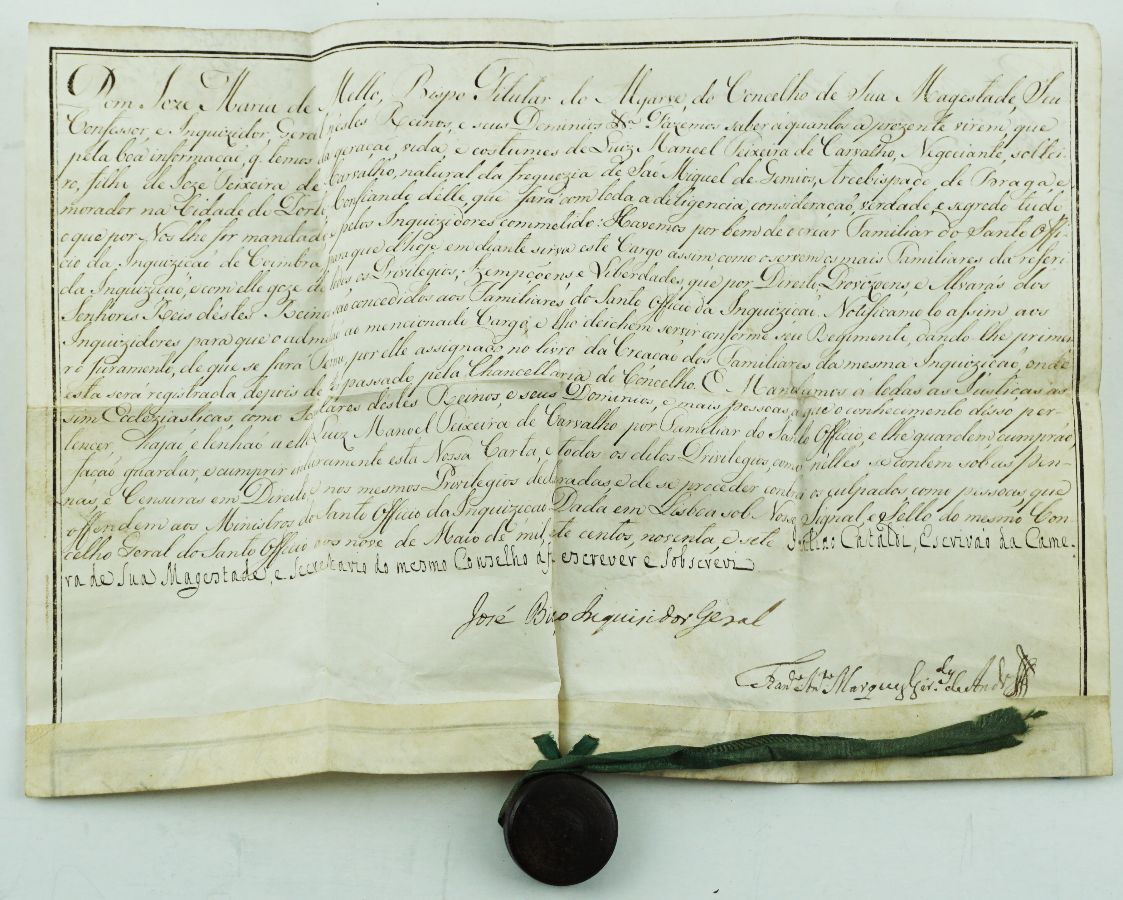 Dom Joze Maria de Mello, Bispo Titular do Algarve, do Concelho de Sua Magestade, Seu
Confessor, e Inquizidor Geral nestes Reinos, e seus Dominios &ª Fazemos saber á quantos a prezente virem, que
pela boa informaçaõ, q. temos da geraçaõ, vida e costumes de Luiz Manoel Teixeira de Carvalho, Negociante, soltei-
ro, filho de Jozé Teixeira de Carvalho, natural da freguezia de Saõ Miguel de Gemios, Arcebispado de Braga e
morador na Cidade do Porto, Confiando delle, que fará com toda a diligencia, consideraçaõ, verdade, e segredo tudo
o que por Nos lhe for mandado, e pelos Inquizidores commetido: Havemos por bem de o criar Familiar do Santo Offi-
cio da Inquiziçaõ de Coimbra, para que d'hoje em diante sirva este Cargo assim como o servem os mais Familiares da referi-
da Inquiziçaõ, e com elle goze de todos os Privilegios, Izempçoens, e Liberdades, que por Direito, Provizoens, e Alvarás dos
Senhores Reis destes Reinos saõ concedidos aos Familiares do Santo Officio da Inquiziçaõ. Notificamolo assim aos
Inquizidores para que o admetaõ ao mencionado Cargo, e lho deichem servir conforme seu Regimento, dando-lhe primei-
ro juramento, de que se fará Termo, por elle assignado, no livro da Creaçaõ dos Familiares da mesma Inquiziçaõ, onde
esta será registrada depois de passada pela Chancellaria do Concelho. E Mandamos á todas as Justiças as-
sim Ecclesiasticas, como Seculares destes Reinos, e seus Dominios, e mais pessoas á que o conhecimento disso per-
tencer, hajaõ, e tenhaõ a elle Luiz Manoel Teixeira de Carvalho por Familiar do Santo Officio, e lhe guardem cumpraõ,
façaõ guardar, e cumprir inteiramente esta Nossa Carta, e todos os ditos Privilegios, como nelles se contem sob as pen-
nas, e Censuras em Direito, e nos mesmos Privilegios declaradas e de se proceder contra os culpados como pessoas que
offendem aos Ministros do Santo Officio da Inquiziçaõ Dada em Lisboa sob Nosso Signal, e Sello do mesmo Con-
celho Geral do Santo Officio aos nove de Maio de mil, sete centos, noventa, e sete Julião Cataldi, Escrivão da Came-
ra de Sua Magestade, e Secretario do mesmo Conselho a fiz escrever e sobscrevi
José Bispo Inquisidor Geral
Marques